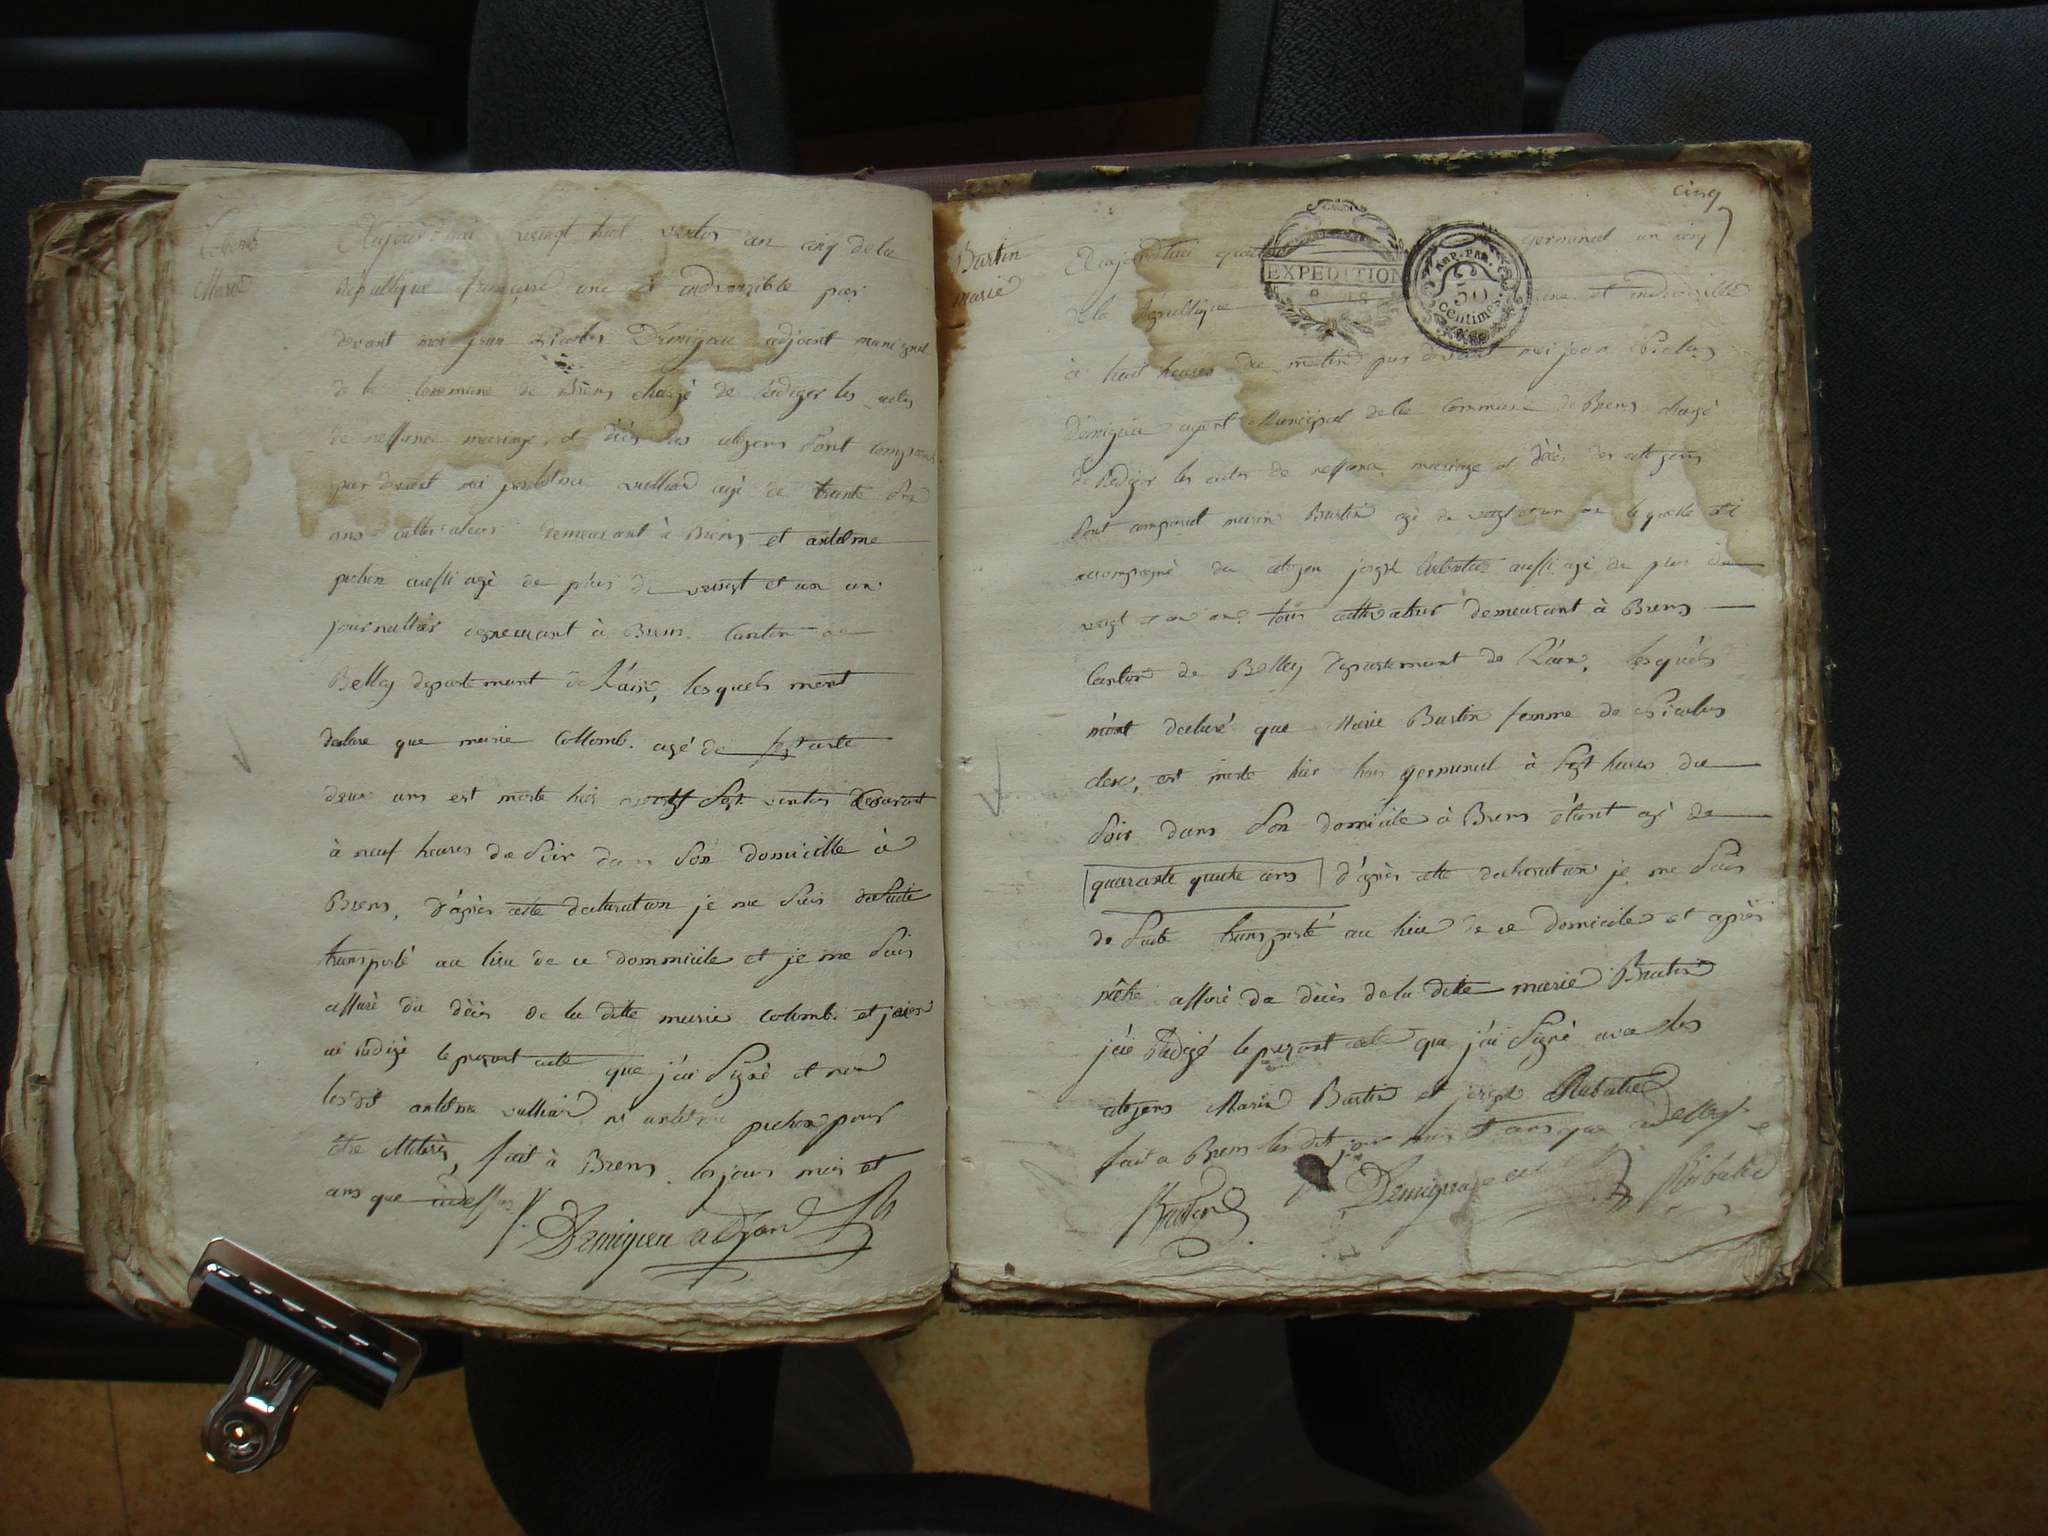 Colomb
Marie
Aujourdhui veingt huit ventos an cinq de la
République françaisse une et indivisible par
devant moi jean Nicolas Demigneu adjoint municipal
de la Commune de Brens chargé de rédiger les actes
de nessance mariage et déces des citoyens sont comparus
par devant moi antoine vulliod agé de trente six
ans cultivateur demeurant à Brens et antoine
pichon aussi agé de plus de veingt et un an
journallier demeurant à Brens Canton de
Belley departemant de L'ain, lesquels mont
declare que marie Collomb. agé de septante
deux ans est morte hier veingt sept ventos
à neuf heures de soir dans son domicille à
Brens, d'après cette declaration je me suis desuite
transporté au lieu de ce dommicile et je me suis
assuré du déces de la ditte marie colomb. et
ai rédigé le present acte que j'ai signé et non
lesdit antoine vulliod ni antoine pichon pour
être illiteré, fait à Brens les jours mois et
ans que cidessus
Demigneu adjoint
cinq
Bartin
marie
EXPEDITION
50
Centimes
Aujourdhui quatre germinal an cinq
de la République une et indivisible
à huit heures du matin par devant moi jean Nicolas
Demigneu agent Municipal de la Commune de Brens chargé
de Rédiger les actes de nessance mariage et déces des citoyens
sont comparut marin Bartin agé de veingt et un an lequelle est
accompagné du citoyen joseph Rubatié aussi agé de plus de
veingt et un ans tous cultivateur demeurant à Brens
Canton de Belley departemant de L'ain, lesquels
m'ont declaré que Marie Bartin femme de Nicolas
clerc, est morte hier trois germinal à sept heures du
soir dans son domicile à Brens étant agé de
quarante quatre ans d'après cette declaration je me suis
de suite transporté au lieu de ce domicile et après
mêtre assuré du déces de la ditte marie Bratin
j'ai Rédigé le present acte que j'ai signé avec les
citoyens Marin Bartin et joseph Rubatié
fait a Brens les dit jour mois et ans que cy dessus
Bratin Demigneu Rubatié